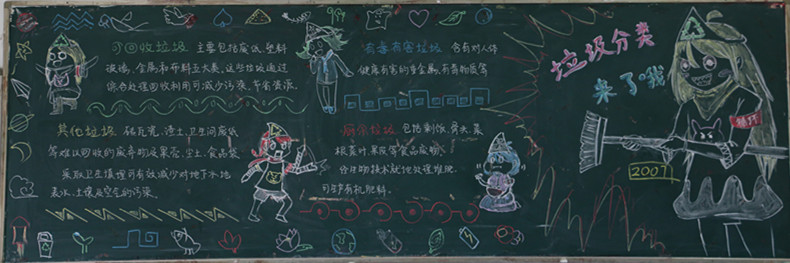 可回收垃圾 主要包括废纸、塑料
玻璃、金属和布料五大类。这些垃圾通过
综合处理回收利用可减少污染、节省资源。
有毒有害垃圾 含有对人体
健康有害的重金属、有毒物质等
其他垃圾 砖瓦瓷、渣土、卫生间废纸
等难以回收的废弃物及果壳、尘土、食品袋
采取卫生填埋可有效减少对地下水地
表水、土壤及空气的污染。
厨余垃圾 包括剩饭、骨头、菜
根菜叶、果皮等食品废物
合生物技术就地处理堆肥
可生产有机肥料。
垃圾分类
来了哦
2007